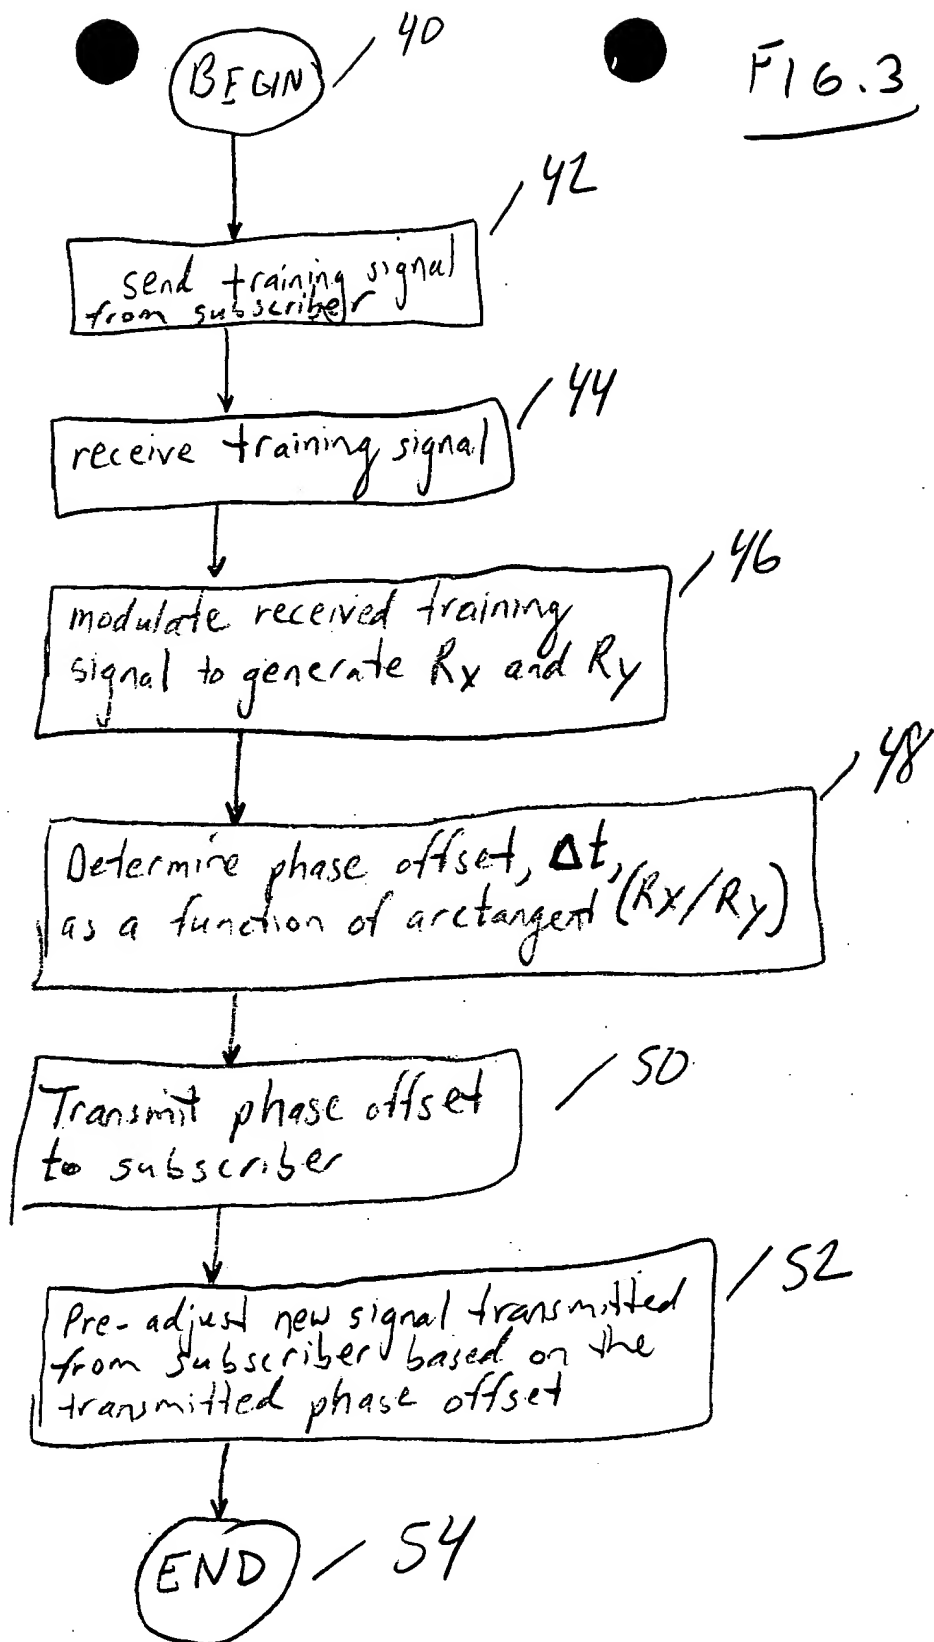 BEGIN
40
FIG.3
42
send training signal
from subscriber
44
receive training signal
46
modulate received training
signal to generate Rx and Ry
48
Determine phase offset, Δt,
as a function of arctangent (Rx/Ry)
50
Transmit phase offset
to subscriber
52
Pre-adjust new signal transmitted
from subscriber based on the
transmitted phase offset
END
54